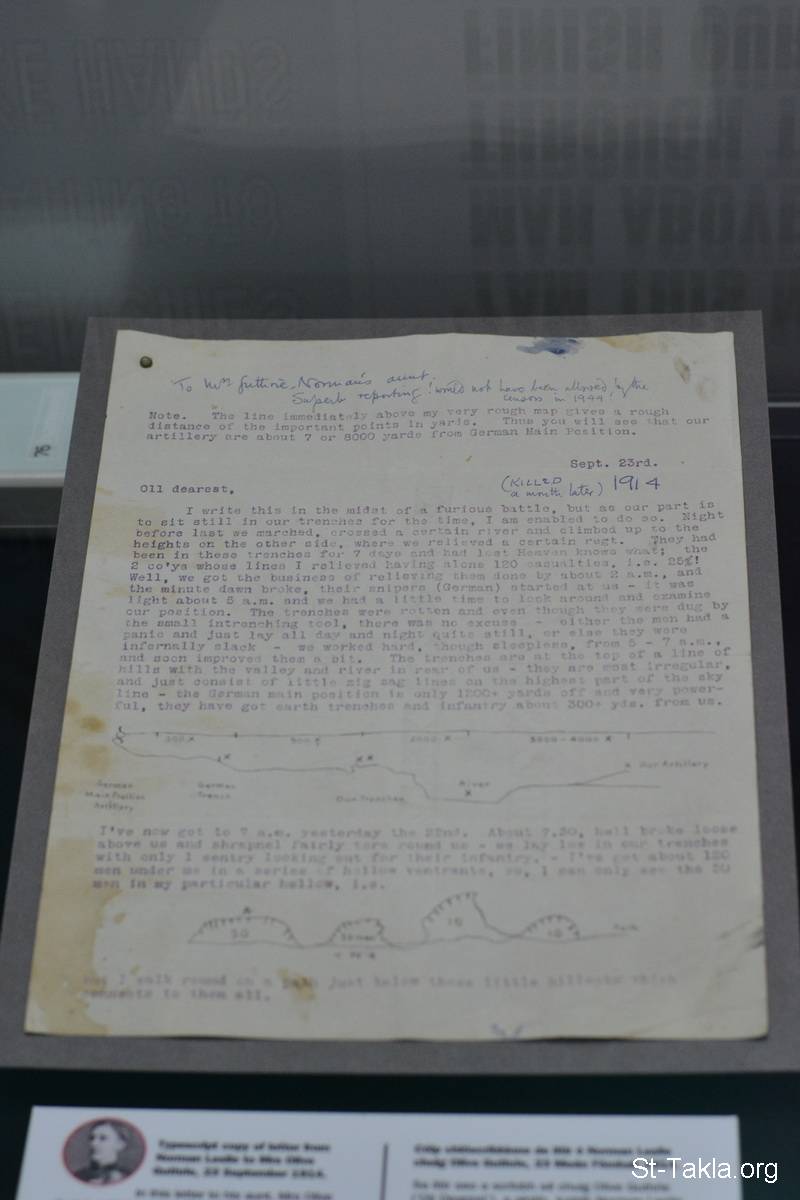 FINISH OUR
THROUGH T
MAN ABOVE
HANDS
To Mrs Guthrie, Norman's aunt.
Superb reporting! would not have been allowed by the
censors in 1944!
Note. The line immediately above my very rough map gives a rough
distance of the important points in yards. Thus you will see that our
artillery are about 7 or 8000 yards from German Main Position.
Sept. 23rd.
(KILLED
a month later) 1914
Oll dearest,
I write this in the midst of a furious battle, but as our part is
to sit still in our trenches for the time, I am enabled to do so. Night
before last we marched, crossed a certain river and climbed up to the
heights on the other side, where we relieved a certain rugt. They had
been in these trenches for 7 days and had lost Heaven knows what; the
2 co'ys whose lines I relieved having alone 120 casualties, i.e. 25%!
Well, we got the business of relieving them done by about 2 a.m., and
the minute dawn broke, their snipers (German) started at us - it was
light about 5 a.m. and we had a little time to look around and examine
our position. The trenches were rotten and even though they were dug by
the small intrenching tool, there was no excuse - either the men had a
panic and just lay all day and night quite still, or else they were
infernally slack - we worked hard, though sleepless, from 5 - 7 a.m.,
and soon improved them a bit. The trenches are at the top of a line of
hills with the valley and river in rear of us - they are most irregular,
and just consist of little zig zag lines on the highest part of the sky
line - the German main position is only 1200+ yards off and very power-
ful, they have got earth trenches and infantry about 300+ yds. from us.
3000 - 4000 x
Our Artillery
German
Main Position
Artillery
German
Trench
Our Trenches
River
I've now got to 7 a.m. yesterday the 22nd. About 7.30, hell broke loose
above us and shrapnel fairly tore round us - we lay low in our trenches
with only 1 sentry looking out for their infantry. - I've got about 120
men under me in a series of hollow
so, I can only see the 50
men in my particular hollow, i.e.
50
10
10
Path
but I walk round on a path just below these little hillocks which
connects to them all.
Typescript copy of letter from
Norman Leslie to Mrs Olive
Guthrie, 23 September 1914.
St-Takla.org